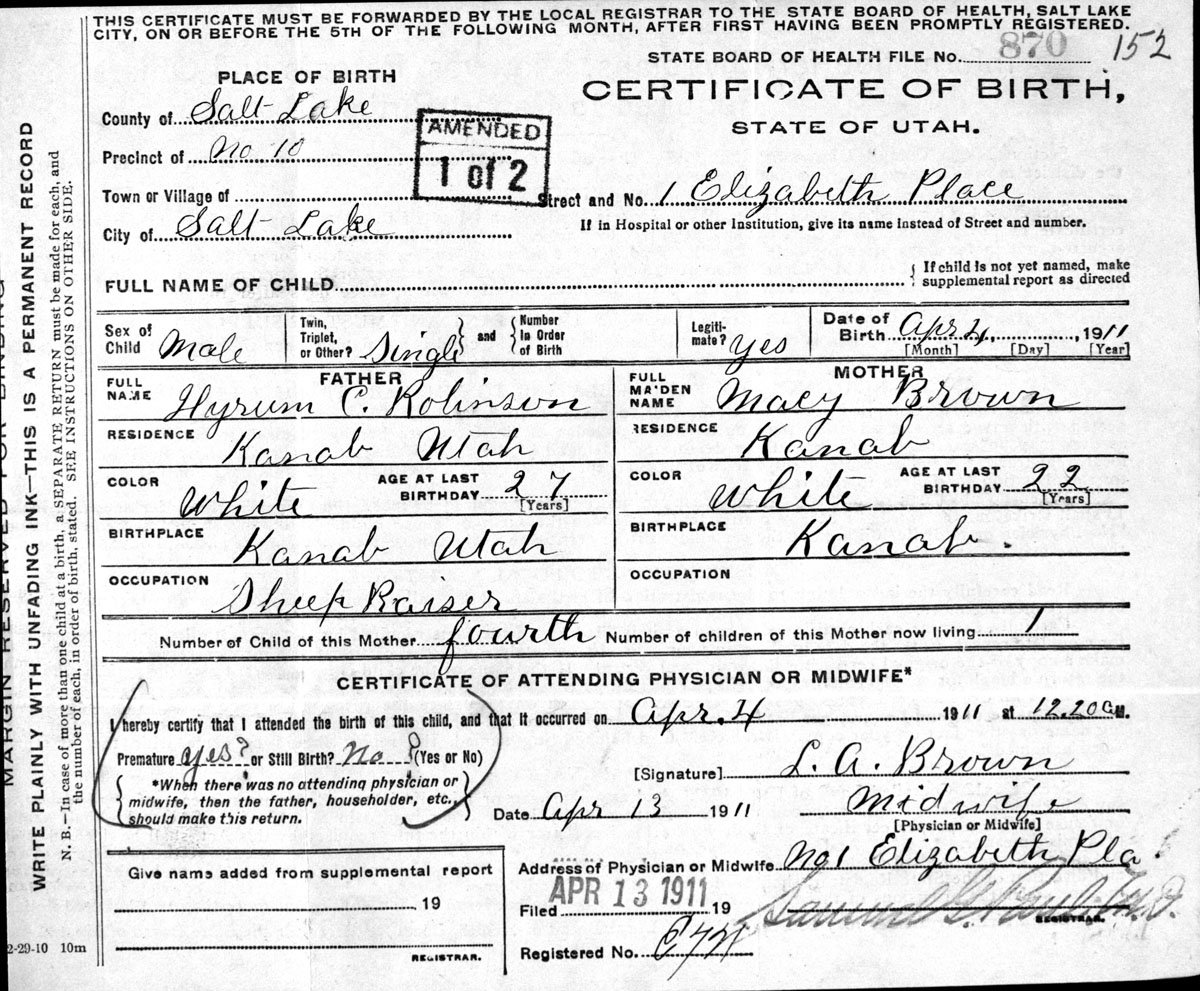 THIS CERTIFICATE MUST BE FORWARDED BY THE LOCAL REGISTRAR TO THE STATE BOARD OF HEALTH, SALT LAKE
CITY, ON OR BEFORE THE 5TH OF THE FOLLOWING MONTH, AFTER FIRST HAVING BEEN PROMPTLY REGISTERED.
STATE BOARD OF HEALTH FILE No. 870 152
PLACE OF BIRTH
CERTIFICATE OF BIRTH,
County of Salt Lake
STATE OF UTAH.
AMENDED
1 of 2
Precinct of No 10
Town or Village of
Street and No. 1 Elizabeth Place
City of Salt Lake
If in Hospital or other Institution, give its name instead of Street and number.
FULL NAME OF CHILD
If child is not yet named, make
supplemental report as directed
Sex of Child Male
Twin, Triplet, or Other? Single and Number in Order of Birth
Legiti-mate? yes
Date of Birth Apr 4, 1911
[Month] [Day] [Year]
FATHER
FULL NAME Hyrum C. Robinson
MOTHER
FULL MAIDEN NAME Macy Brown
RESIDENCE Kanab Utah
RESIDENCE Kanab
COLOR White AGE AT LAST BIRTHDAY 27 [Years]
COLOR White AGE AT LAST BIRTHDAY 22 [Years]
BIRTHPLACE Kanab Utah
BIRTHPLACE Kanab.
OCCUPATION Sheep Raiser
OCCUPATION
Number of Child of this Mother fourth Number of children of this Mother now living 1
CERTIFICATE OF ATTENDING PHYSICIAN OR MIDWIFE*
I hereby certify that I attended the birth of this child, and that it occurred on Apr. 4 1911 at 12.20 a M.
Premature yes? or Still Birth? No? (Yes or No)
[Signature] L. A. Brown
*When there was no attending physician or
midwife, then the father, householder, etc.,
should make this return.
Date Apr 13 1911 Midwife
[Physician or Midwife]
Give name added from supplemental report
19
REGISTRAR.
Address of Physician or Midwife No 1 Elizabeth Pla.
Filed APR 13 1911 19
REGISTRAR.
Registered No.
2-29-10 10m
MARGIN RESERVED FOR BINDING
WRITE PLAINLY WITH UNFADING INK—THIS IS A PERMANENT RECORD
N. B.—In case of more than one child at a birth, a SEPARATE RETURN must be made for each, and
the number of each, in order of birth, stated. SEE INSTRUCTIONS ON OTHER SIDE.